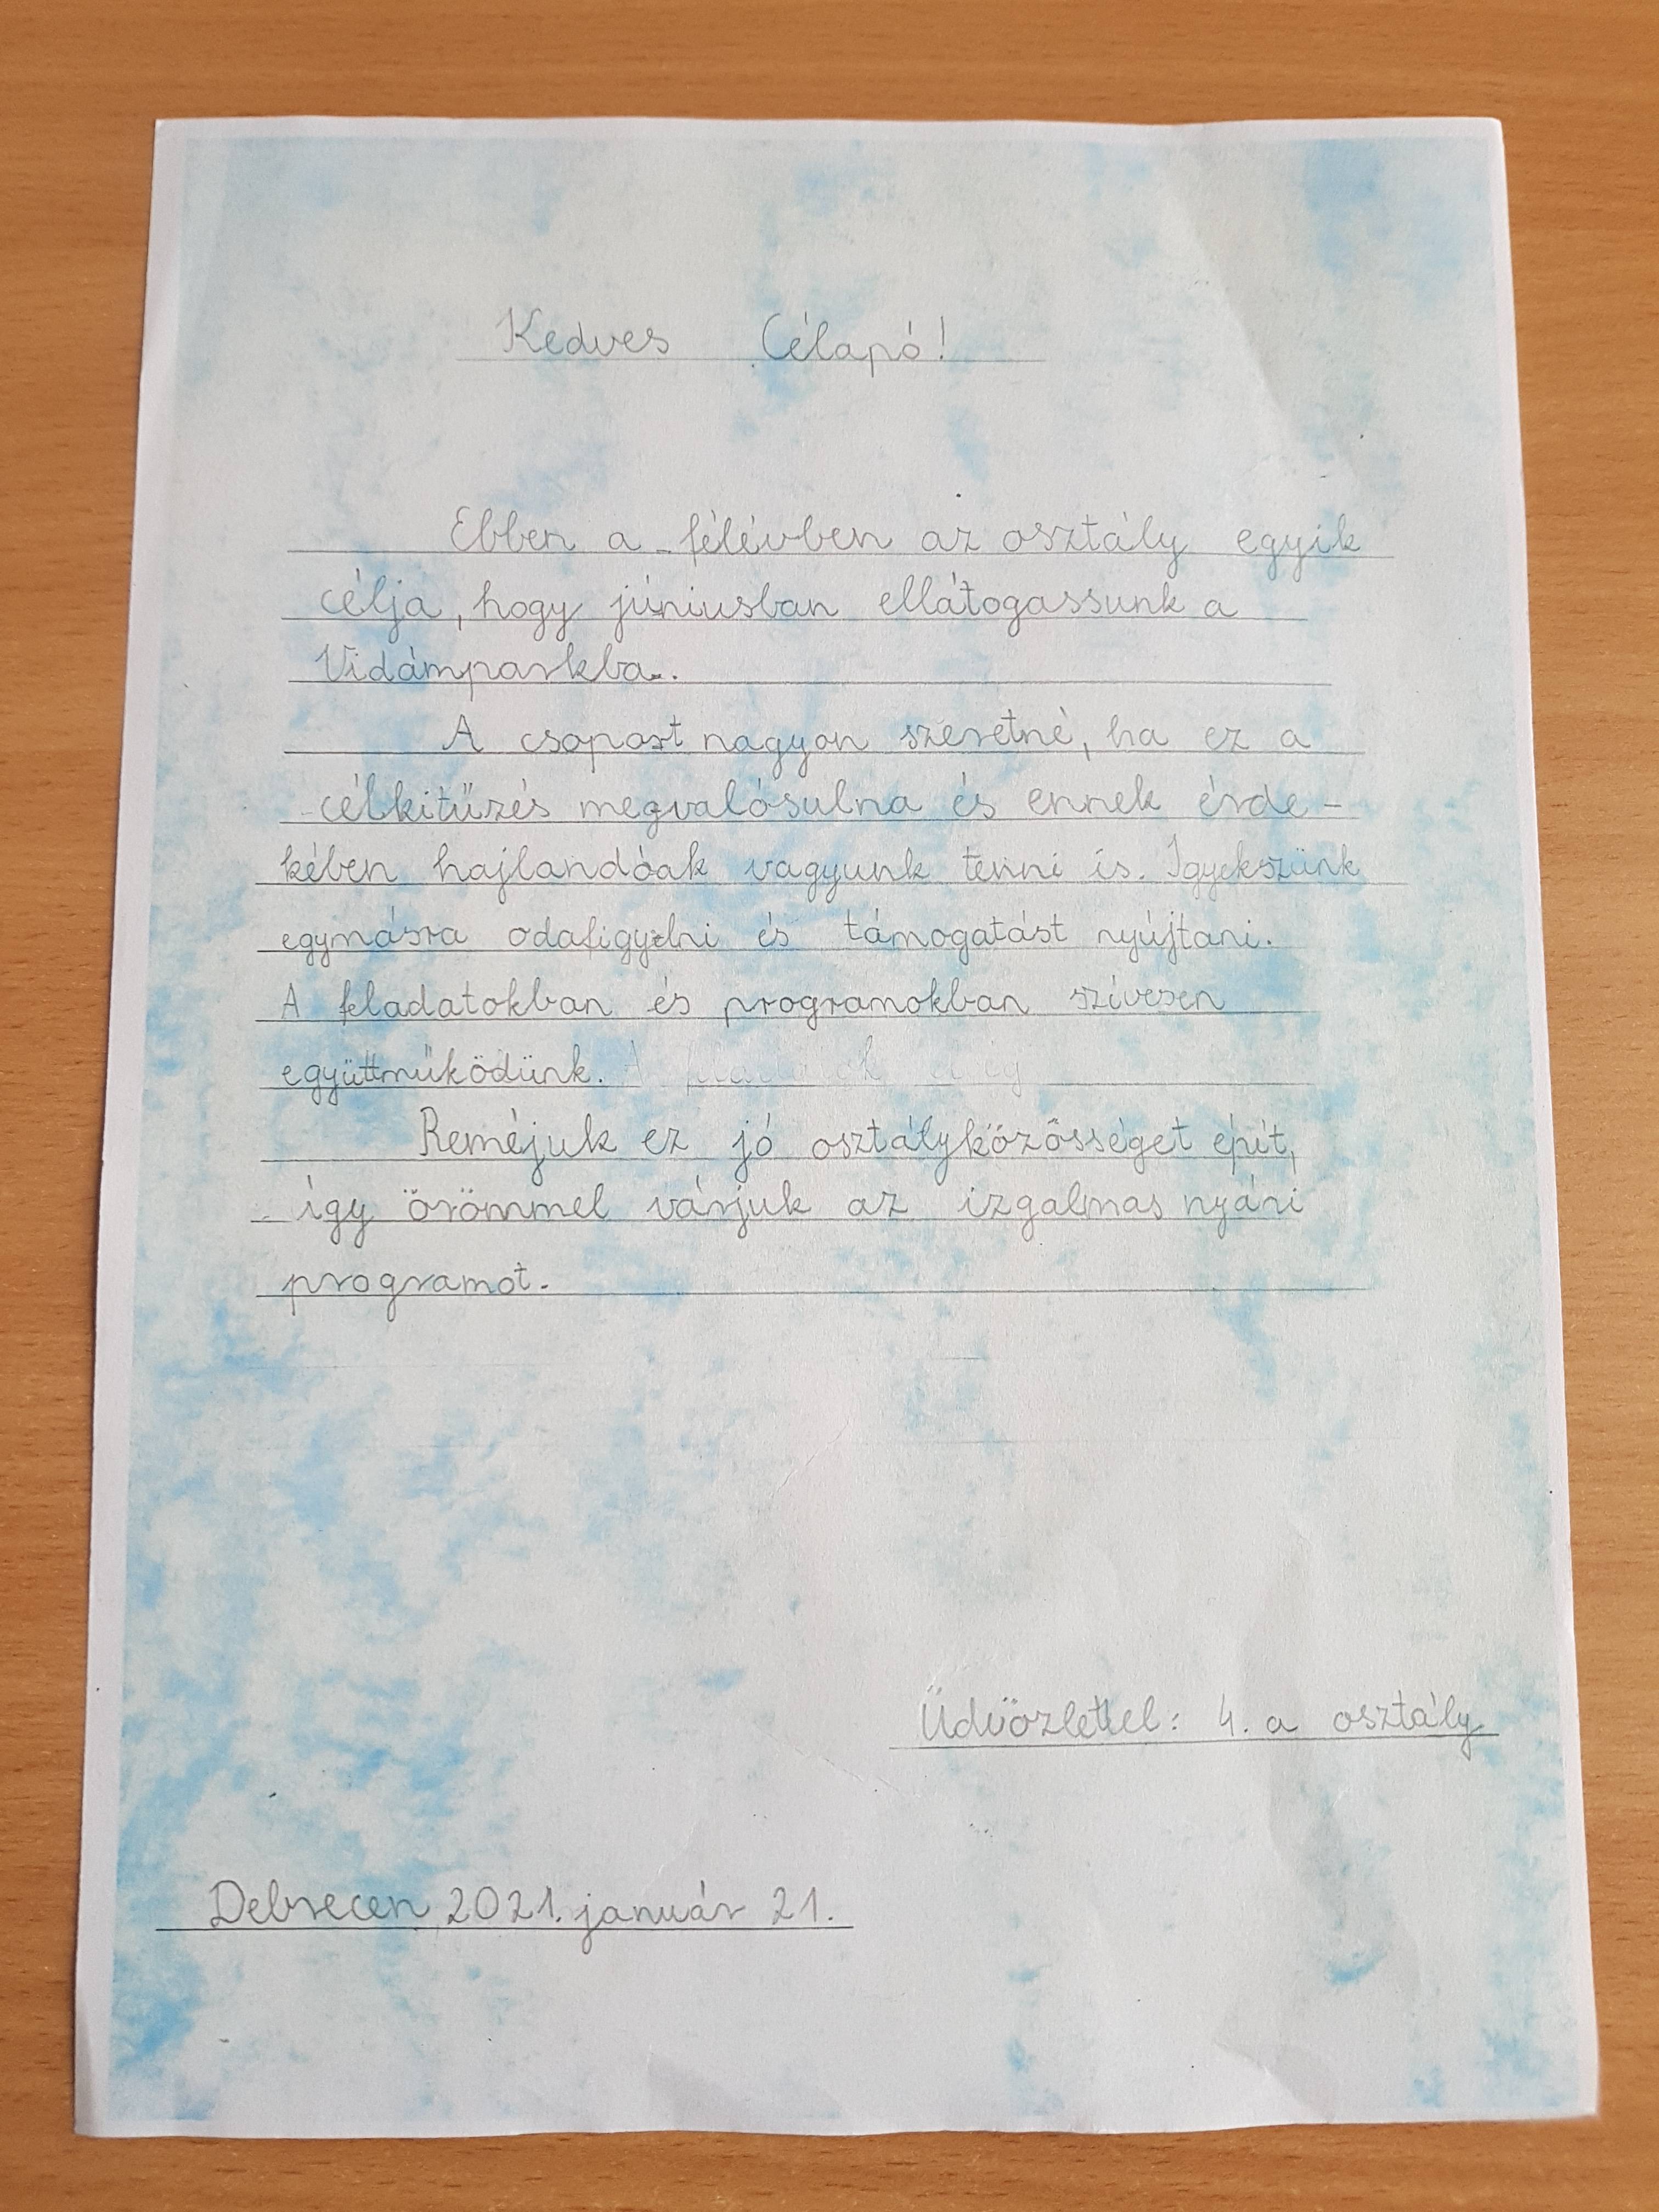 Kedves Célapó!
Ebben a félévben az osztály egyik
célja, hogy júniusban ellátogassunk a
Vidámparkba.
A csoport nagyon szeretné, ha ez a
célkitűzés megvalósulna és ennek érde-
kében hajlandóak vagyunk tenni is. Igyekszünk
egymásra odafigyelni és támogatást nyújtani.
A feladatokban és programokban szívesen
együttműködünk.
Reméjuk ez jó osztályközösséget épít,
így örömmel várjuk az izgalmas nyári
programot.
Üdvözlettel: 4. a osztály
Debrecen 2021. január 21.